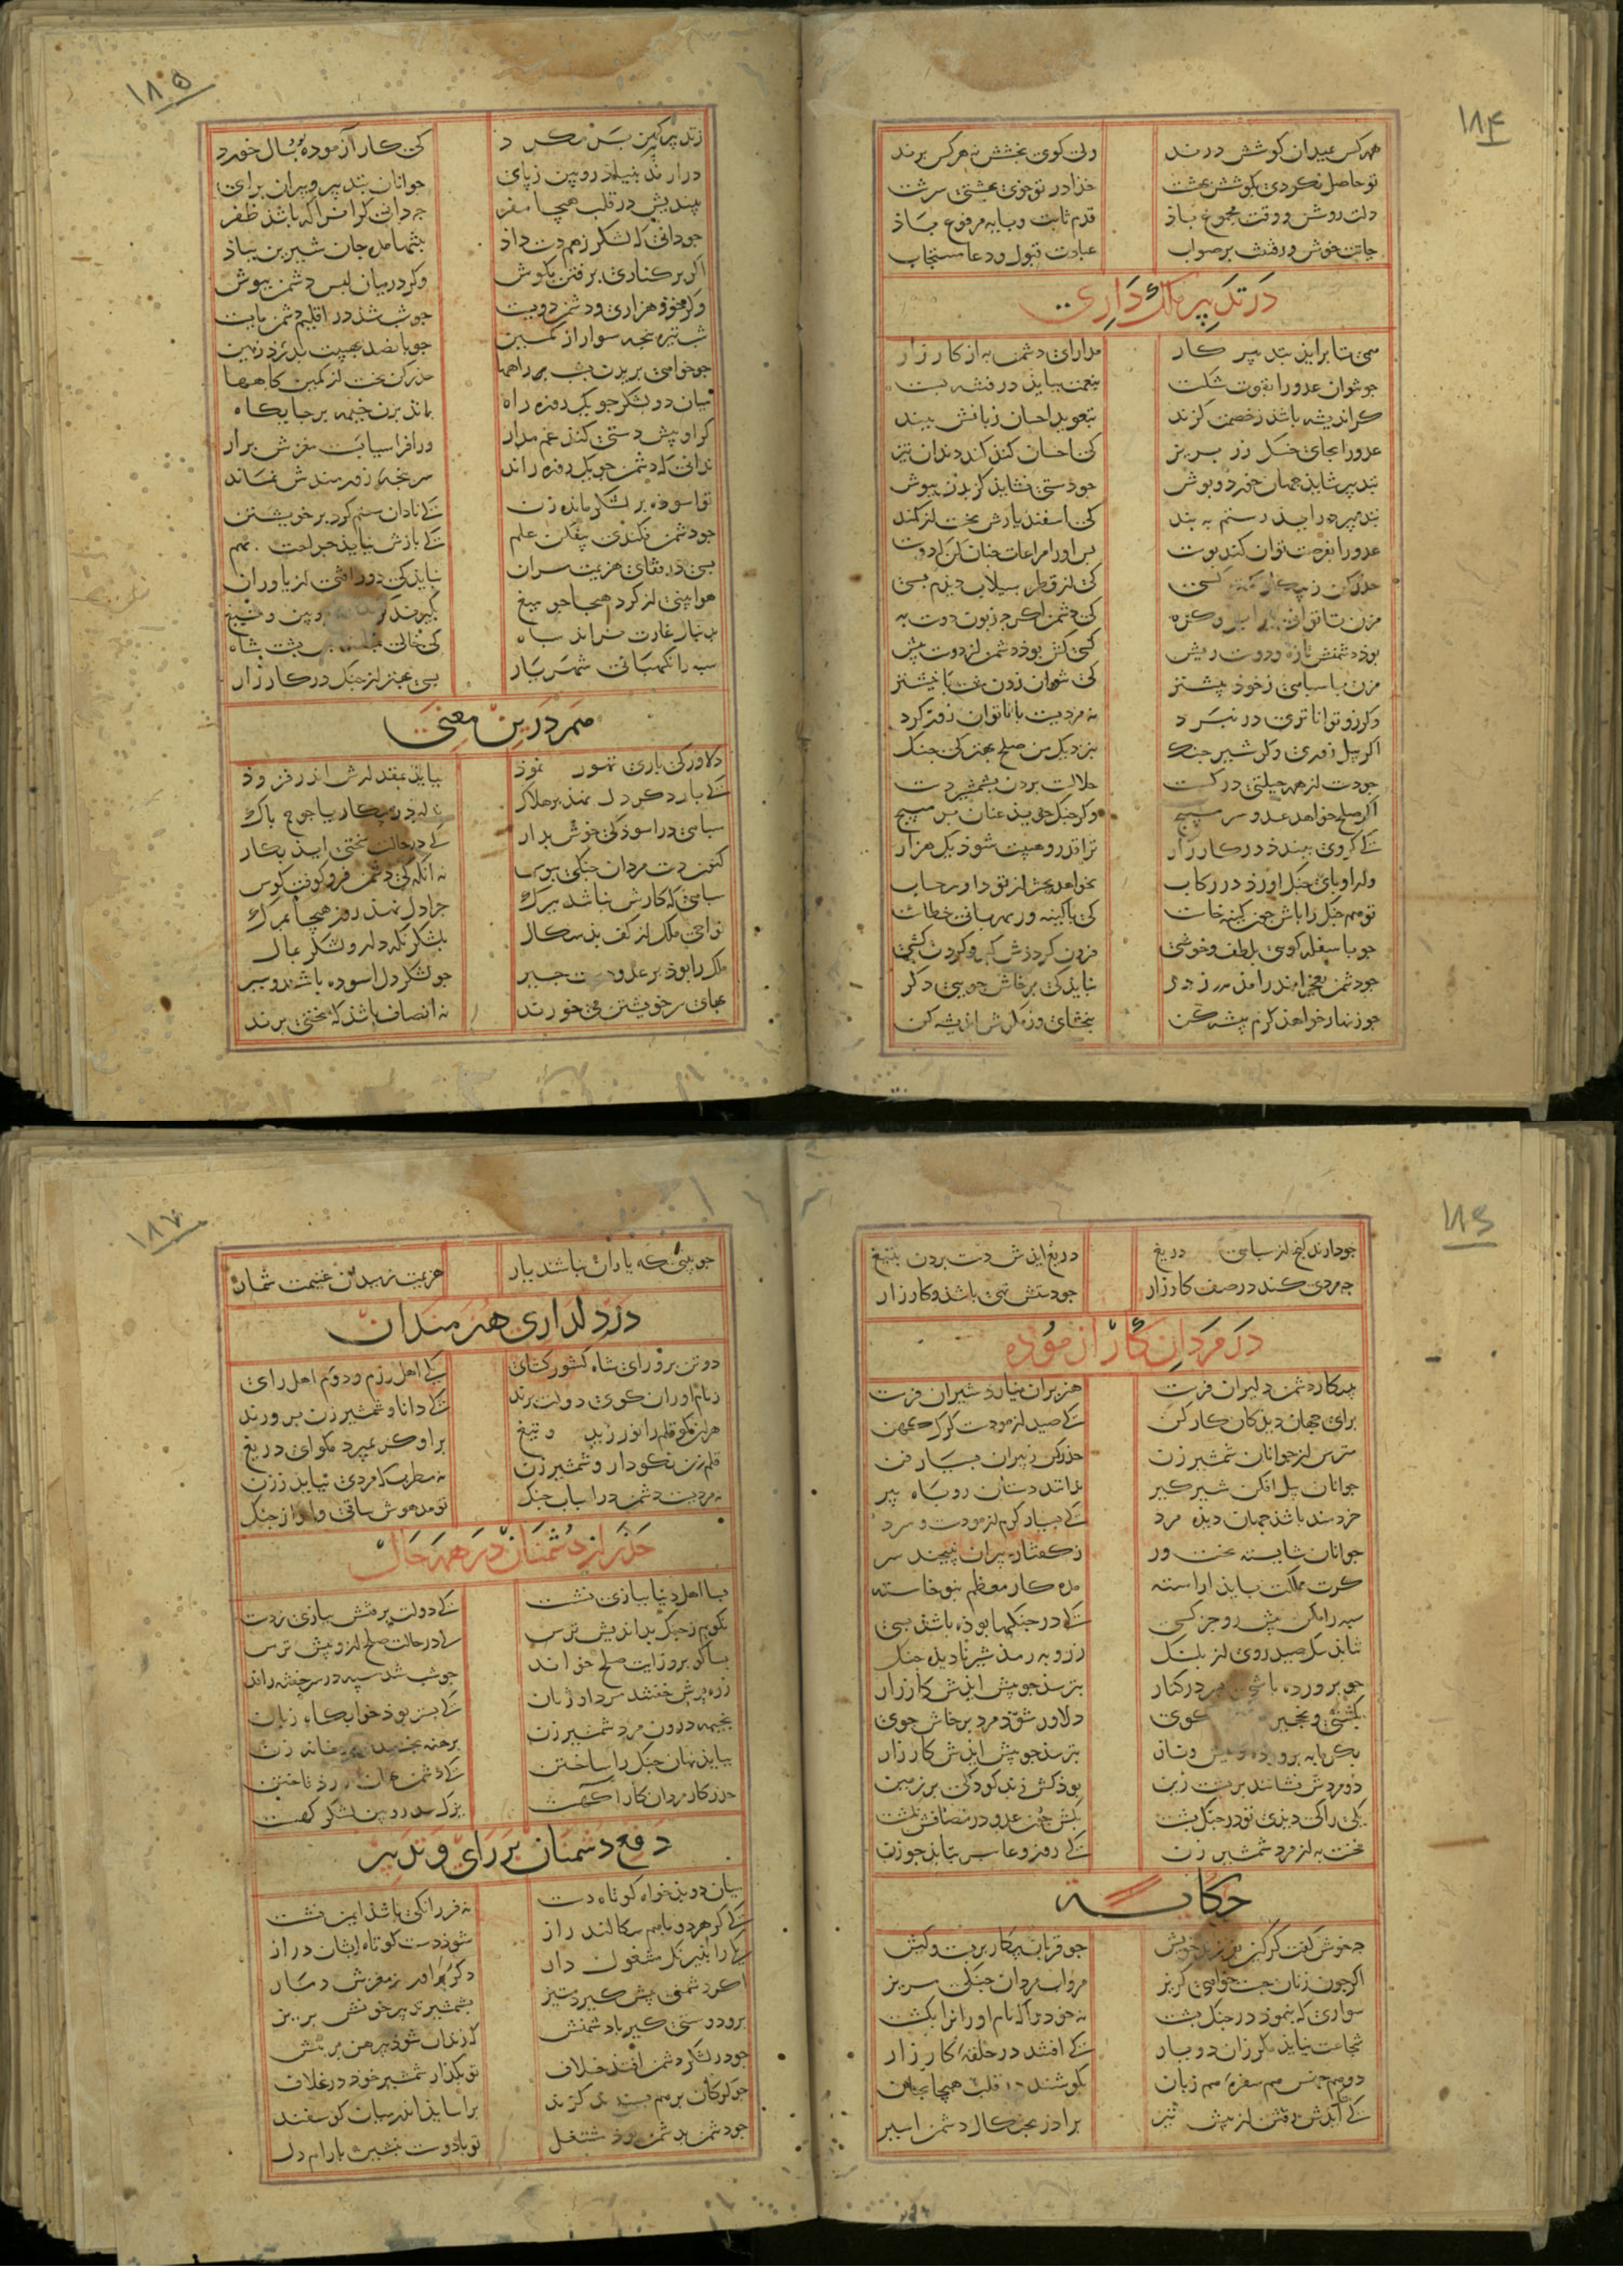 ۱۸۴
همه کس بمیدان کوشش درند ولی کوی بخشش نه هرکس برند
تو حاصل نکردی بکوشش بهشت خدا در تو خوی بهشتی سرشت
دلت روشن و وقت مجموع باذ قدم ثابت و پایه مرفوع باذ
حیاتت خوش و رفتنت بر صواب عبادت قبول و دعا مستجاب
در تدبیر ملک داری
همی تا برایذ بتدبیر کار مدارای دشمن به از کارزار
جو نتوان عدو را بقوت شکست بنعمت ببایذ در فتنه بست
کر اندیشه باشذ ز خصمت کزند بتعویذ احسان زبانش ببند
عدو را بجای خسک زر بریز کی احسان کند کند دندان تیز
بتدبیر شایذ جهان خورد و بوش جو دستی نشایذ کزیدن ببوس
بتدبیر درایذ رستم به بند کی اسفندیارش نجست از کمند
عدو را بفرصت توان کند بوست بس او را مراعات جنان کن که دوست
حذر کن ز پیکار کمتر کسی کی از قطره سیلاب دیذم بسی
مزن تا توانی بر ابرو کره کی دشمن اکرجه زبون دوست به
بوذ دشمنش تازه و دوست ریش کسی کش بوذ دشمن از دوست بیش
مزن با سباهی ز خود بیشتر کی نتوان زدن مشت با نیشتر
وکر زو تواناتری در نبرد نه مردیست با ناتوان زور کرد
اکر بیل زوری و کر شیر جنک بنزدیک من صلح بهتر کی جنک
جو دست از همه حیلتی در کسست حلالست بردن بشمشیر دست
اکر صلح خواهد عدو سر مپیچ وکر جنک جویذ عنان بر مپیچ
کی کر وی ببندذ در کارزار ترا قدر و هیبت شود یک هزار
ور او بای جنک اورذ در رکاب نخواهد بحشر از تو داور حساب
تو هم جنک را باش جون کینه خاست کی با کینه ور مهربانی خطاست
جو با سفله کویی بلطف و خوشی فزون کرددش کبر و کردن کشی
جو دشمن بعجز اندر امذ ز در نبایذ کی برخاش جویی دکر
جو زنهار خواهذ کرم پیشه کن ببخشای وز مکرش اندیشه کن
۱۸۵
ز تدبیر پیر کهن بر مکرد کی کار آزموده بوذ سال خورد
درارند بنیاد رویین ز پای جوانان بتدبیر و پیران برای
بیندیش در قلب هیجا مفر جه دانی کرا زان که باشذ ظفر
جو دانی که لشکر ز هم دست داذ بتنها مده جان شیرین بباذ
اکر بر کناری برفتن بکوش وکر در میان لبس دشمن ببوش
وکر خوذ هزاری و دشمن دویست جو شب شذ در اقلیم دشمن مایست
شب تیره بنجه سوار از کمین جو بانصد بهیبت بدرذ زمین
جو خواهی بریدن بشب راهها حذر کن نخست از کمین کاهها
میان دو لشکر جو یک روزه راه بماند بزن خیمه بر جایکاه
کر او پیش دستی کند غم مدار ور افراسیابست مغزش برار
ندانی که دشمن جو یک روزه راند سر بنجه زورمندش نماند
تو اسوده بر لشکر مانده زن کی نادان ستم کرد بر خویشتن
جو دشمن فکندی بیفکن علم کی بازش نیایذ جراحت بهم
بسی در قفای هزیمت مران نبایذ کی دور افتی از یاوران
هوا بینی از کرد هیجا جو میغ بکیرند کردت بزوبین و تیغ
بدنبال غارت نراند سباه کی خالی بماند بس پشت شاه
سبه را نکهبانی شهریار بسی بهتر از جنک در کارزار
هم درین معنی
دلاور کی باری تهور نموذ ببایذ بمقدارش اندر فزوذ
کی بار دکر دل نهذ بر هلاک نداردز پیکار یاجوج باک
سباهی در اسودکی خوش بدار کی در حالت سختی ایذ بکار
کنون دست مردان جنکی ببوس نه آنکه کی دشمن فرو کوفت کوس
سباهی که کارش نباشد ببرک جرا دل نهذ روز هیجا بمرک
نواحی ملک از کف بدسکال بلشکر نکه دار و لشکر بمال
ملک را بوذ بر عدو دست جیر جو لشکر دل اسوده باشند و سیر
بهای سر خویشتن می خورند نه انصاف باشذ که سختی برند
۱۸۶
جو دارند کنج از سباهی دریغ دریغ ایذش دست بردن بتیغ
جه مردی کند در صف کارزار جو دستش تهی باشذ و کار زار
در مردان کار ازموده
بپیکار دشمن دلیران فرست هزبران بناورد شیران فرست
برای جهان دیدکان کار کن کی صید ازمودست کرک کهن
مترس از جوانان شمشیر زن حذر کن ز پیران بسیار فن
جوانان پیل افکن شیر کیر ندانند دستان روباه پیر
خردمند باشذ جهان دیذه مرد کی بسیار کرم ازمودست و سرد
جوانان شایسته بخت ور ز کفتار پیران نپیچند سر
کرت مملکت بایذ اراسته مده کار معظم بنوخاسته
سبه را مکن پیش رو جز کسی کی در جنکها بوذه باشذ بسی
نتابذ سک صید روی از بلنک ز روبه رمذ شیر نادیذه جنک
جو برورده باشی پسر در کنار بترسذ جو پیش ایذش کارزار
بکشتی و نخجیر کوی دلاور شوذ مرد برخاش جوی
بکرمابه برورده و عیش و ناز بترسذ جو پیش ایذش کارزار
دو مردش نشانند بر پشت زین بوذ کش زند کودکی بر زمین
یکی را کی دیذی تو در جنک بشت بکش جون عدو در مصافش نکشت
مخنث به از مرد شمشیر زن کی روز وغا سر بتابذ جو زن
حکایت
جه خوش کفت کرکین بفرزند خویش جو قربان بیکار بربست و کیش
اکر جون زنان جست خواهی کریز مرو آب مردان جنکی مریز
سواری که بنموذ در جنک بشت نه خود را که نام اوران را بکشت
شجاعت نیایذ مکر زان دو یار کی افتند در حلقه کارزار
دو هم جنس هم سفره هم زبان بکوشند در قلب هیجا بجان
کی آیذش رفتن از پیش تیر برادر بجنکال دشمن اسیر
۱۸۷
جو بینی که یاران نباشند یار هزیمت ز میدان غنیمت شمار
در دلداری هنرمندان
دو تن برور ای شاه کشور کشای یکی اهل رزم و دوم اهل رای
ز نام اوران کوی دولت برند کی دانا و شمشیر زن برورند
هر انکو قلم را نورزید و تیغ بر او کر بمیرد مکو ای دریغ
قلم زن نکو دار و شمشیر زن نه مطرب که مردی نیایذ ز زن
نه مردیست دشمن در اسباب جنک تو مدهوش ساقی و اواز جنک
حذر از دشمنان در همه حال
بسا اهل دنیا ببازی نشست کی دولت برفتش ببازی ز دست
نکویم ز جنک بداندیش ترس کی در حالت صلح ازو بیش ترس
بسا کو بروز ایت صلح خواند جو شب شد سپه در سر خفته راند
زره پوش خفتند مرد اوژنان کی بستر بوذ خوابکاه زنان
بخیمه درون مرد شمشیر زن برهنه نخسبد جو در خانه زن
ببایذ نهان جنک را ساختن کی دشمن نهان آورذ تاختن
حذر کار مردان کار اکهست یزک سد رویین لشکر کهست
دفع دشمنان بر رای و تدبیر
میان دو بدخواه کوتاه دست نه فرزانکی باشذ ایمن نشست
کی کر هر دو باهم سکالند راز شوذ دست کوتاه ایشان دراز
یکی را بنیرنک مشغول دار دکر را براور ز مغزش دمار
اکر دشمنی پیش کیرد ستیز بشمشیر تدبیر خونش بریز
برو دوستی کیر با دشمنش که زندان شوذ پیرهن بر تنش
جو در لشکر دشمن افتذ خلاف تو بکذار شمشیر خود در غلاف
جو کرکان بر هم بسندند کزند براسایذ اندر میان کوسفند
جو دشمن بدشمن بوذ مشتغل تو با دوست بنشین بارام دل